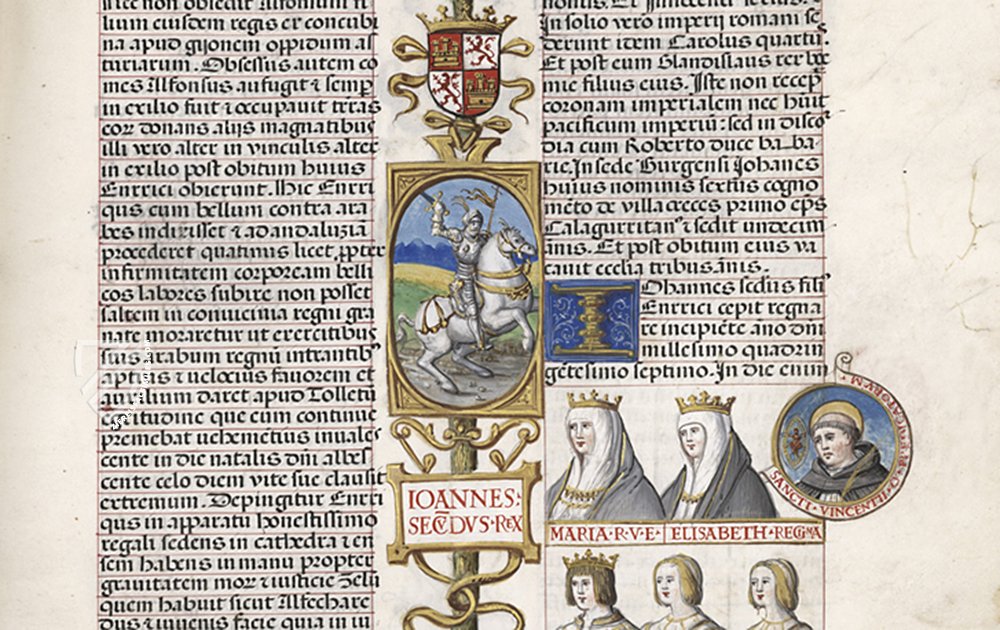 lium eiusdem regis ex concubi
na apud gijonem oppidum as
turiarum. Obsessus autem co
mes Alfonsus aufugit ⁊ semp
in exilio fuit ⁊ occupauit terras
eor donans alijs magnatibus
illi vero alter in vinculis alter
in exilio post obitum huius
Enrrici obierunt. Hic Enrri
qus cum bellum contra ara
bes indixisset ⁊ ad andaluziā
procederet quatinus licet, ppter
infirmitatem corpoream belli
cos labores subire non posset
saltem in conuicinia regni gra
nate moraretur ut exercitibus
suis arabum regnū intrantib
aptius ⁊ uelocius fauorem et
auxilium daret apud Tolletū
egritudine que eum continue
premebat uehemētius inuales
cente in die natalis dm̄ albes
cente celo diem vite sue clausit
extremum. Depingitur Enrri
qus in apparatu honestissimo
regali sedens in cathedra ⁊ en
sem habens in manu propter
grauitatem mor ⁊ iusticie zelū
quem habuit sicut
dus ⁊ iuuenis facie quia in iu
IOANNES
SECV̄DVS REX
In solio vero imperij romani se
derunt item Carolus quartus
Et post eum Glandislaus rex boe
mie filius eius. Iste non recepit
coronam imperialem nec huit
pacificum imperiū: sed in disco
dia cum Roberto duce ba ba
rie. In sede Burgensi Johanes
huius nominis sextus cogno
mēto de villa creces primo eps
Calagurritan ⁊ sedit undecim
ānis. Et post obitum eius va
cauit ecclia tribus ānis.
IOhannes scdus fili
Enrrici cepit regna
re incipiēte āno dm̄
millesimo quadrin
gētesimo septimo. In die enim
MARIA·R·V·E·
ELISABETH·REGINA
SANCTI·VINCENTII